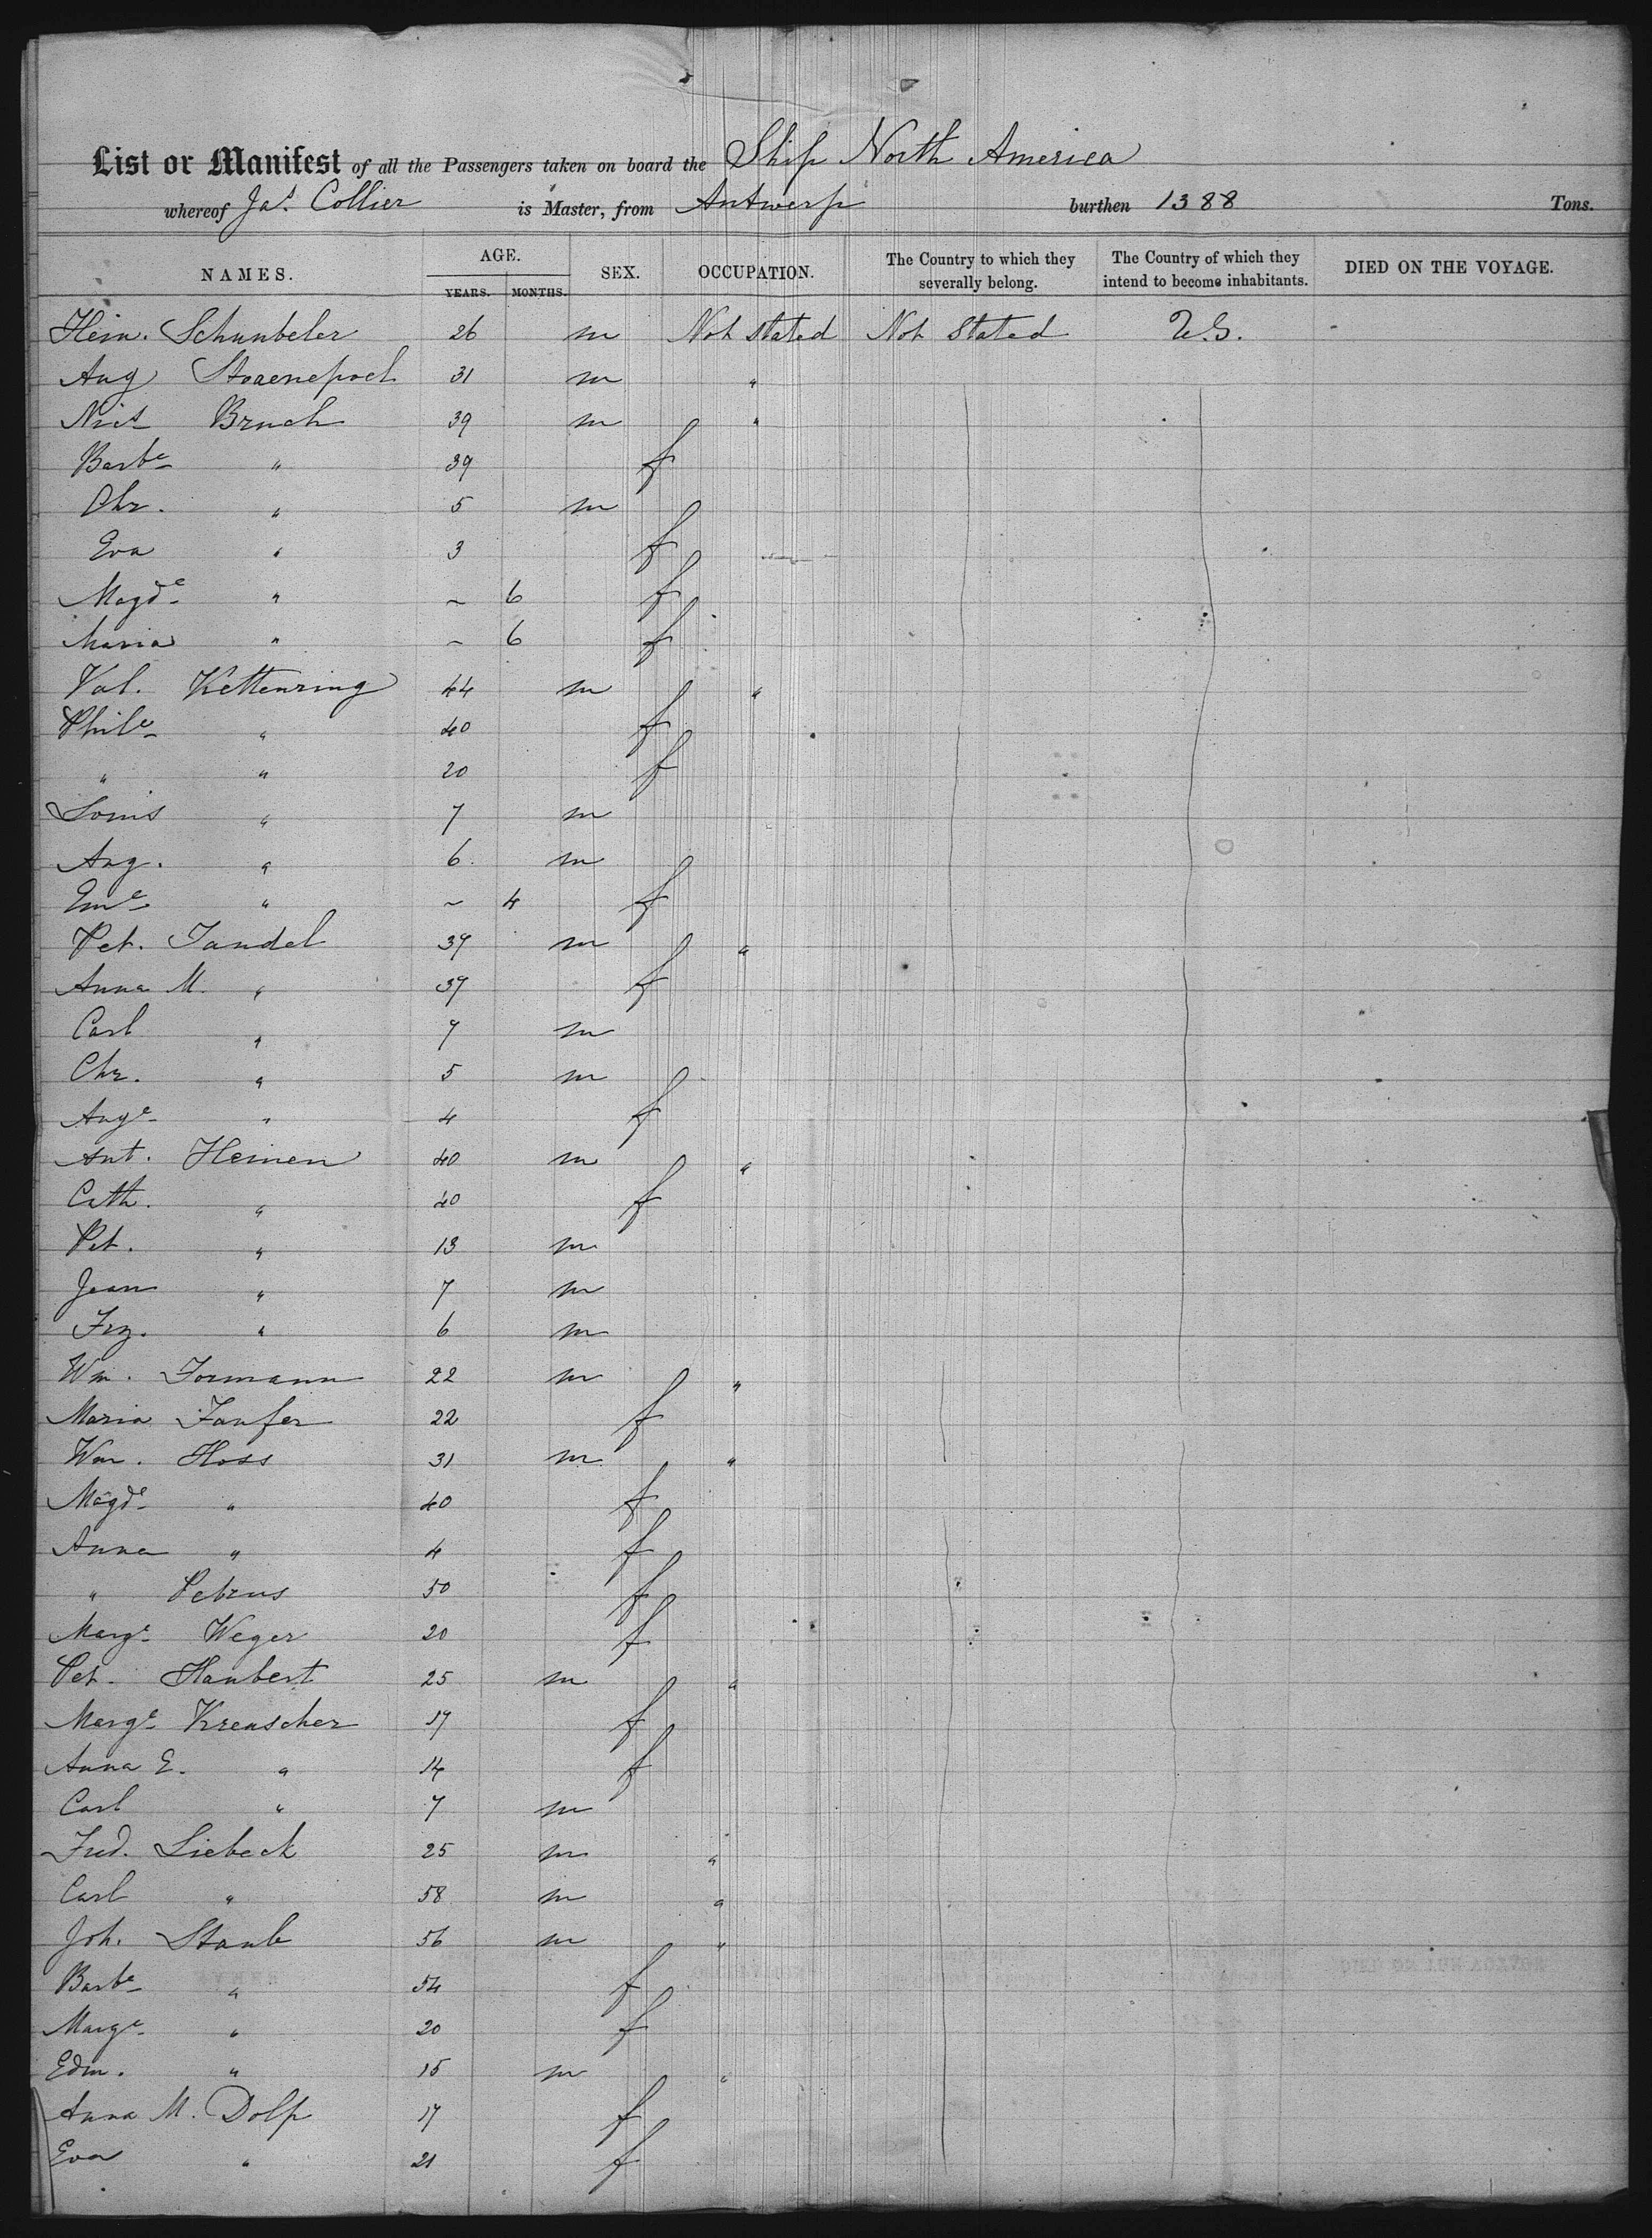 List or Manifest of all the Passengers taken on board the Ship North America
whereof Jas. Collier is Master, from Antwerp burthen 1388 Tons.
NAMES. AGE. YEARS. MONTHS. SEX. OCCUPATION. The Country to which they severally belong. The Country of which they intend to become inhabitants. DIED ON THE VOYAGE.
Hein. Schunbeler 26 m Not Stated Not Stated U.S.
Aug 31 m "
Nics Bruch 39 m "
Barbe " 39 f
Chr. " 5 m
Eva " 3 f
Magde " ~ 6 f
Maria " ~ 6 f
Val. Kettenring 44 m "
Phile " 40 f
" " 20 f
Louis " 7 m
Aug. " 6 m
Eme " ~ 4 f
Pet. Jandel 39 m "
Anna M. " 39 f
Carl " 9 m
Chr. " 5 m
Auge " 4 f
Ant. Heinen 40 m "
Cath. " 40 f
Pet. " 13 m
Jean " 7 m
Frz. " 6 m
Wm. Formann 22 m "
Maria Faufer 22 f
Wm. Hoss 31 m "
Magde " 40 f
Anna " 4 f
" Petrus 50 f
Marge Weger 20 f
Pet. Haubert 25 m "
Marge Kreuscher 19 f
Anna E. " 14 f
Carl " 7 m
Fred. Liebeck 25 m "
Carl " 58 m "
Joh. Staub 56 m "
Barbe " 54 f
Marge " 20 f
Edm. " 15 m "
Anna M. Dolp 17 f
Eva " 21 f